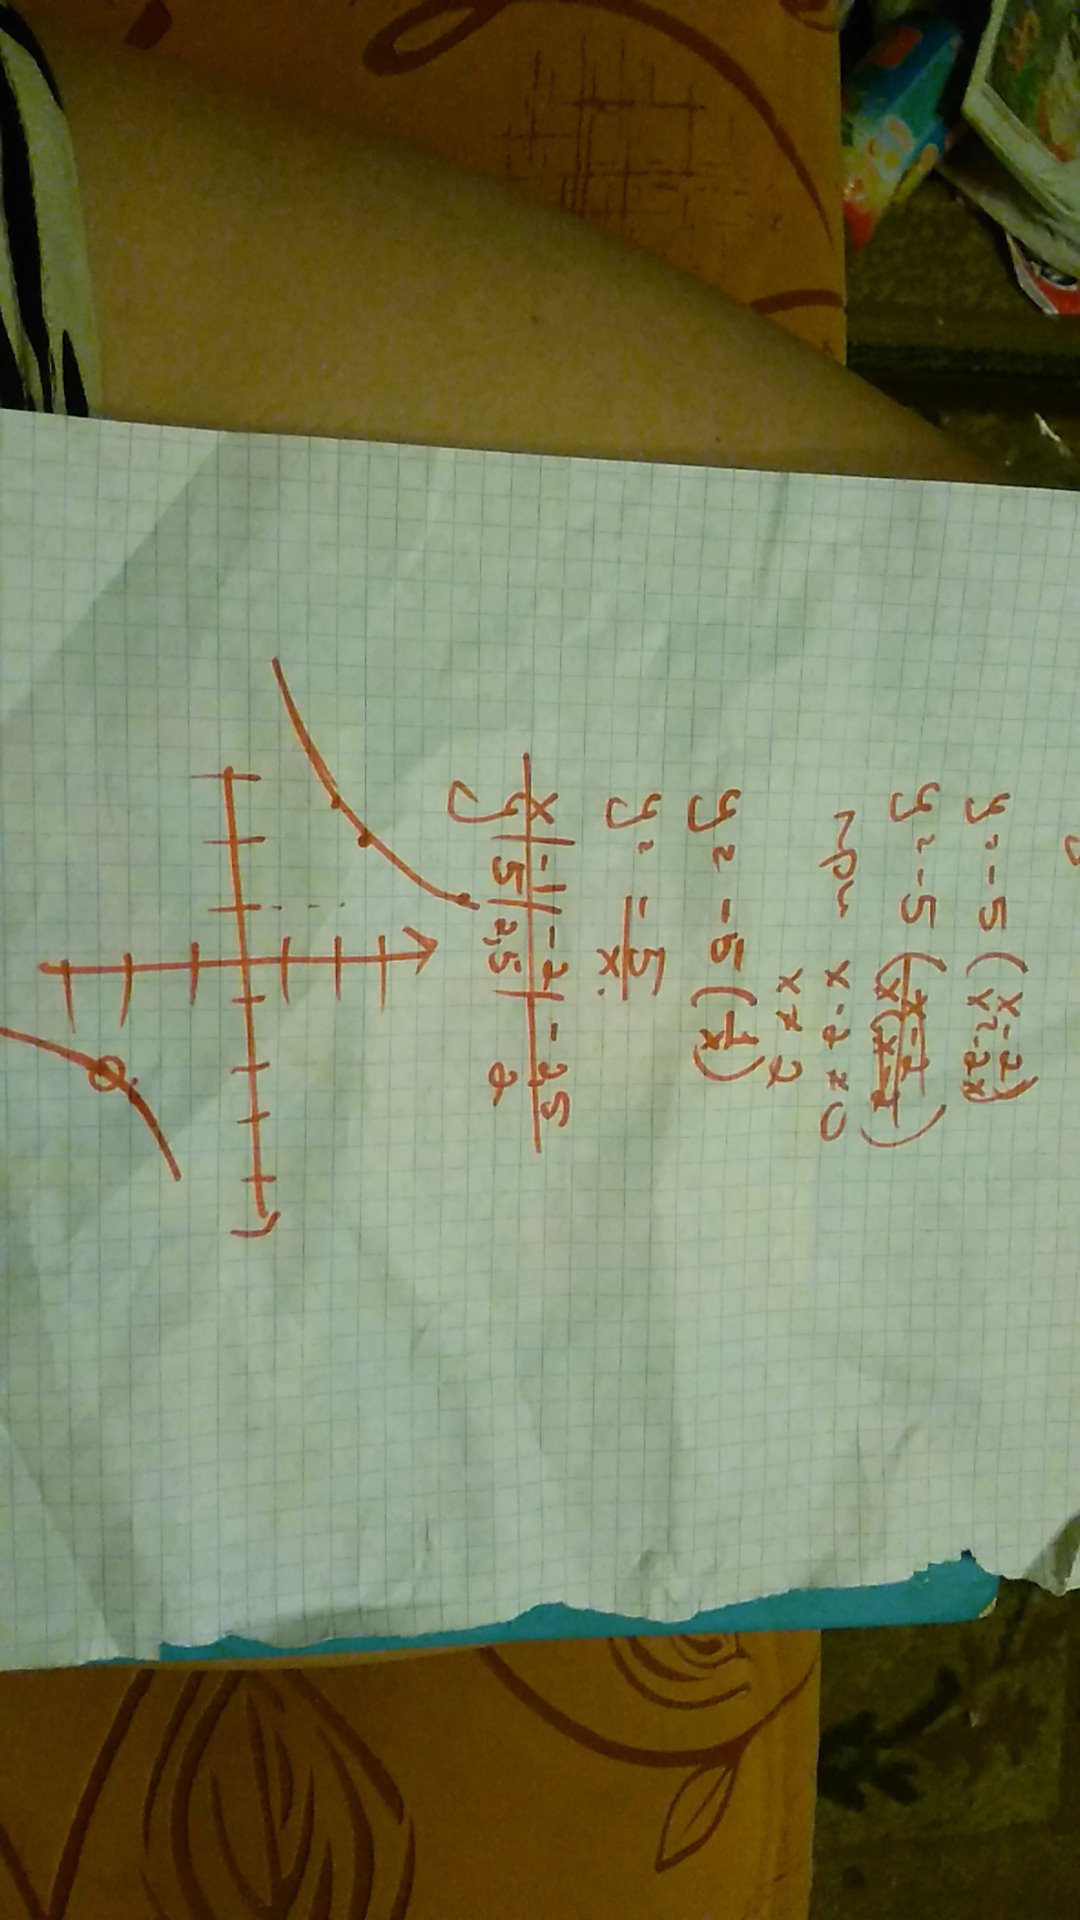 y = -5 (x-2 / x²-2x)
y = -5 (x-2 / x(x-2))
при x-2 ≠ 0
x ≠ 2
y = -5 (1/x)
y = -5/x.
x | -1 | -2 | -2,5
y | 5 | 2,5 | 2